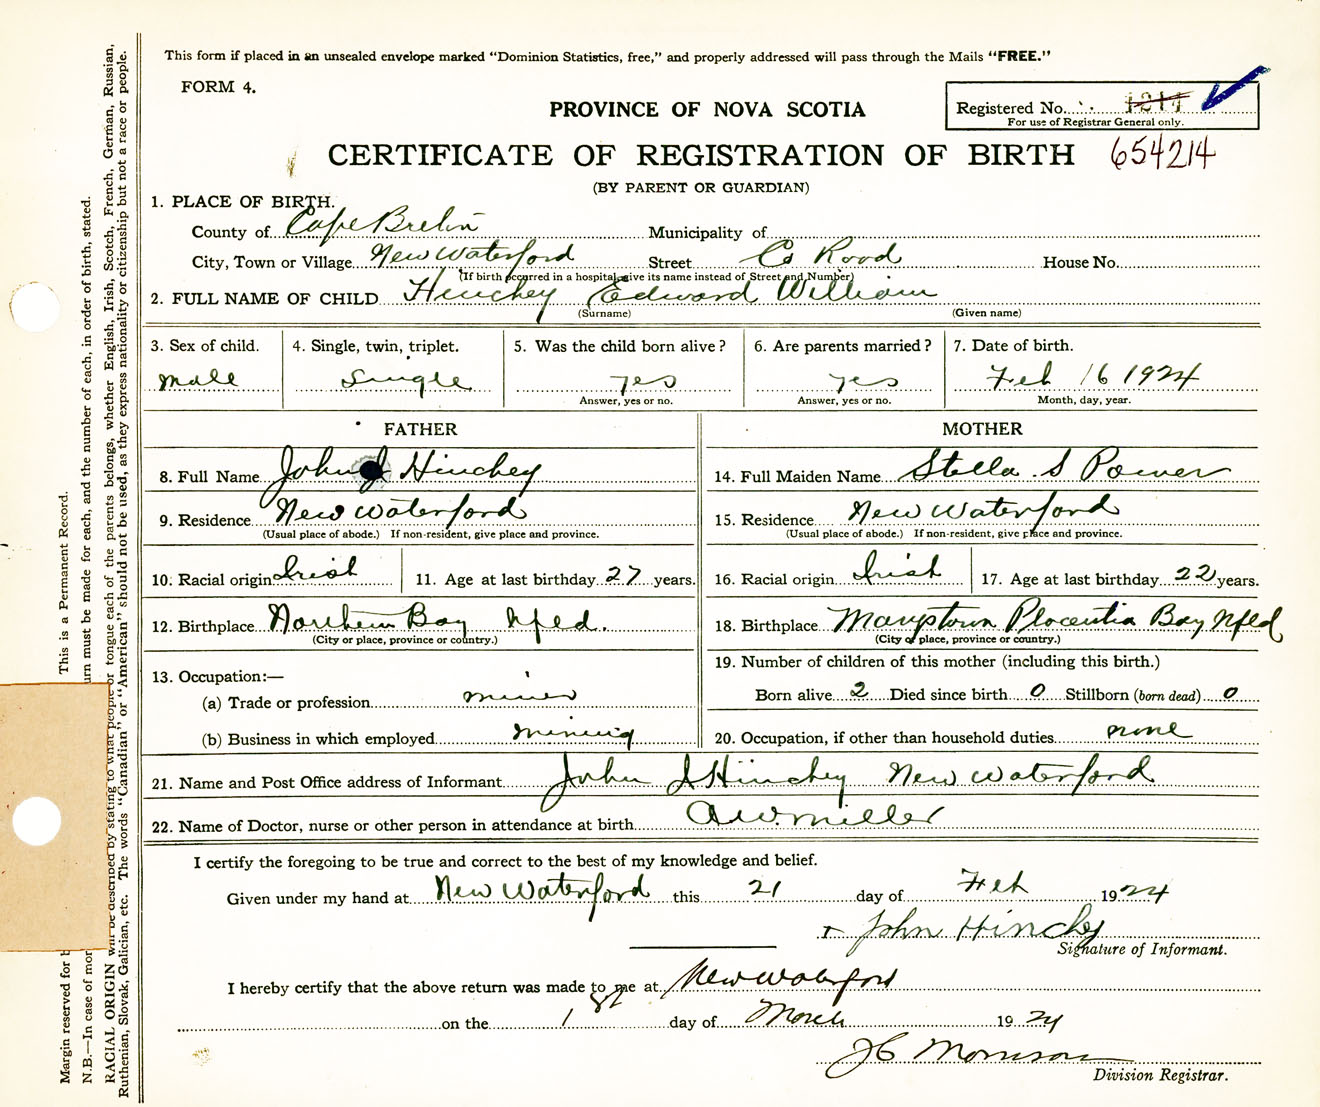 This form if placed in an unsealed envelope marked "Dominion Statistics, free," and properly addressed will pass through the Mails "FREE."
FORM 4.
PROVINCE OF NOVA SCOTIA
Registered No.
For use of Registrar General only.
CERTIFICATE OF REGISTRATION OF BIRTH 654214
(BY PARENT OR GUARDIAN)
1. PLACE OF BIRTH.
County of Cape Breton Municipality of
City, Town or Village New Waterford Street Co Road House No.
(If birth occurred in a hospital give its name instead of Street and Number)
2. FULL NAME OF CHILD Hinchey Edward William
(Surname) (Given name)
3. Sex of child. 4. Single, twin, triplet. 5. Was the child born alive? 6. Are parents married? 7. Date of birth.
Male Single Yes Yes Feb 16 1924
Answer, yes or no. Answer, yes or no. Month, day, year.
FATHER MOTHER
8. Full Name John J Hinchey 14. Full Maiden Name Stella S Power
9. Residence New Waterford 15. Residence New Waterford
(Usual place of abode.) If non-resident, give place and province. (Usual place of abode.) If non-resident, give place and province.
10. Racial origin Irish 11. Age at last birthday 27 years. 16. Racial origin Irish 17. Age at last birthday 22 years.
12. Birthplace Northern Bay Nfld. 18. Birthplace Marystown Placentia Bay Nfld
(City or place, province or country.) (City or place, province or country.)
13. Occupation:— 19. Number of children of this mother (including this birth.)
(a) Trade or profession miner Born alive 2 Died since birth 0 Stillborn (born dead) 0
(b) Business in which employed mining 20. Occupation, if other than household duties none
21. Name and Post Office address of Informant John J Hinchey New Waterford
22. Name of Doctor, nurse or other person in attendance at birth A.W. Miller
I certify the foregoing to be true and correct to the best of my knowledge and belief.
Given under my hand at New Waterford this 21 day of Feb 1924
John Hinchey
Signature of Informant.
I hereby certify that the above return was made to me at New Waterford
on the 1st day of March 1924
J C Morrison
Division Registrar.
Margin reserved for b This is a Permanent Record.
N.B.—In case of mor urn must be made for each, and the number of each, in order of birth, stated.
RACIAL ORIGIN will be described by stating to what people or tongue each of the parents belongs, whether English, Irish, Scotch, French, German, Russian,
Ruthenian, Slovak, Galician, etc. The words "Canadian" or "American" should not be used, as they express nationality or citizenship but not a race or people.